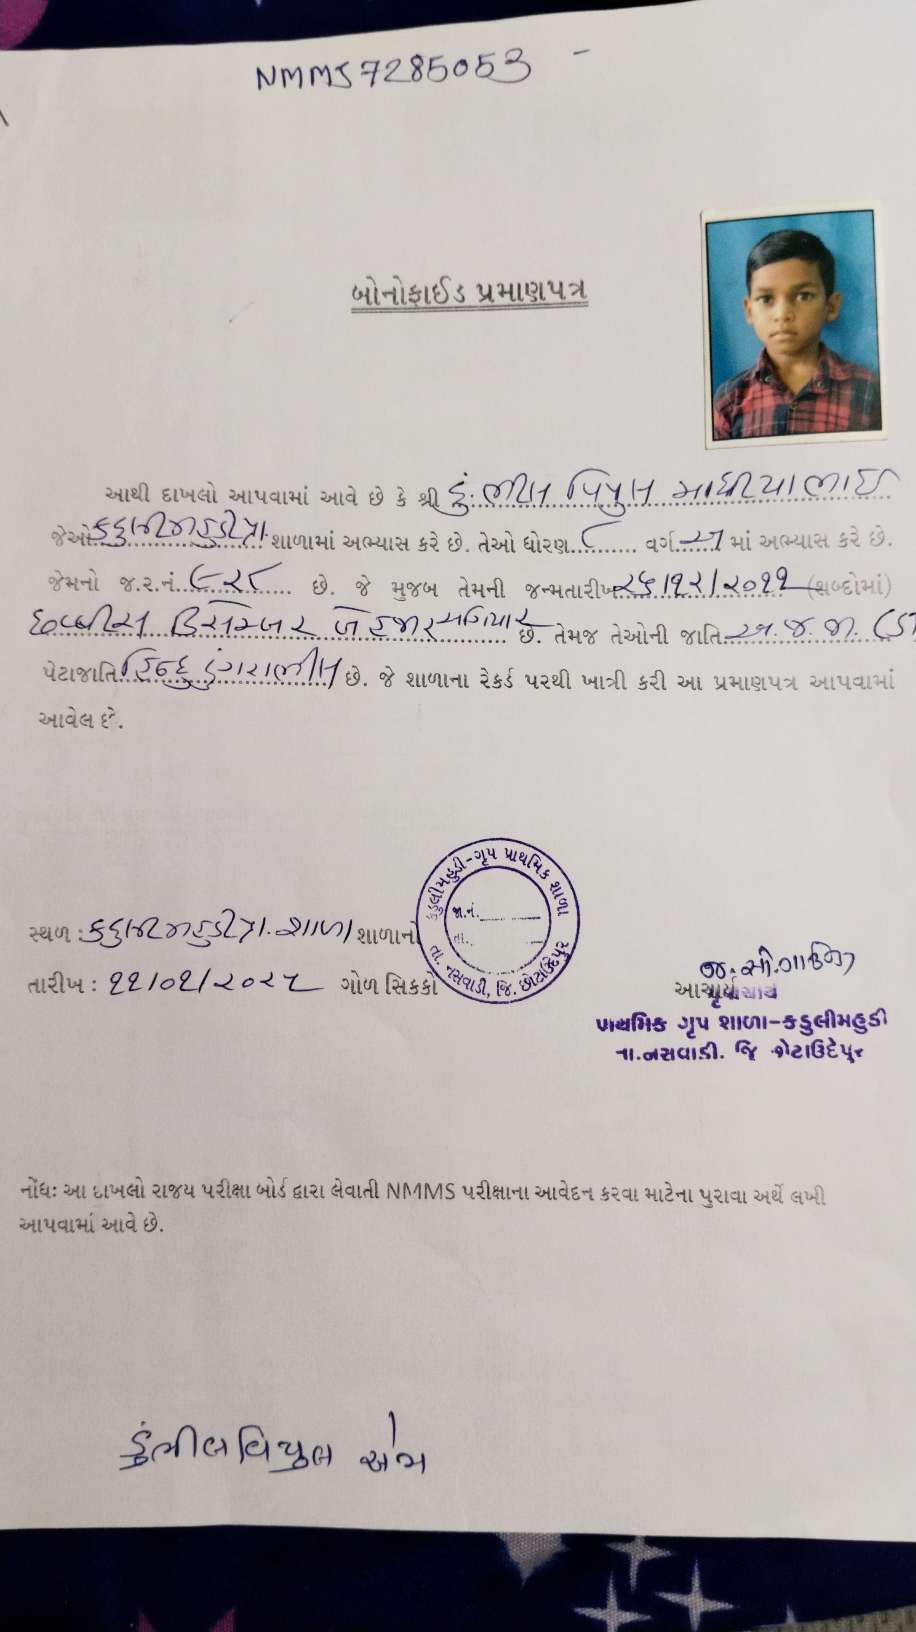 NMMS7285053 -
બોનોફાઈડ પ્રમાણપત્ર
આથી દાખલો આપવામાં આવે છે કે શ્રી ડું.ભીલ વિપુલ માધીયાભાઇ
જેઓ કડુલીમહુડી પ્રા શાળામાં અભ્યાસ કરે છે. તેઓ ધોરણ ૮ વર્ગ અ માં અભ્યાસ કરે છે.
જેમનો જ.ર.નં. ૯૨૮ છે. જે મુજબ તેમની જન્મતારીખ ૨૬/૧૨/૨૦૧૧ (શબ્દોમાં)
છવ્વીસ ડિસેમ્બર બે હજાર અગિયાર છે. તેમજ તેઓની જાતિ અ.જ.જા. (ST
પેટાજાતિ હિન્દુ ડુંગરાભીલ છે. જે શાળાના રેકર્ડ પરથી ખાત્રી કરી આ પ્રમાણપત્ર આપવામાં
આવેલ છે.
કડુલીમહુડી-ગૃપ પ્રાથમિક શાળા
જા.નં.
તા.
તા. નસવાડી, જિ. છોટાઉદેપુર
સ્થળ : કડુલીમહુડી પ્રા. શાળા શાળાનો
તારીખ : ૧૧/૦૧/૨૦૨૫ ગોળ સિક્કો
આચાર્ય
પ્રાથમિક ગૃપ શાળા-કડુલીમહુડી
તા.નસવાડી. જિ છોટાઉદેપુર
નોંધ: આ દાખલો રાજય પરીક્ષા બોર્ડ દ્વારા લેવાતી NMMS પરીક્ષાના આવેદન કરવા માટેના પુરાવા અર્થે લખી
આપવામાં આવે છે.
ડુંભીલ વિપુલ એમ